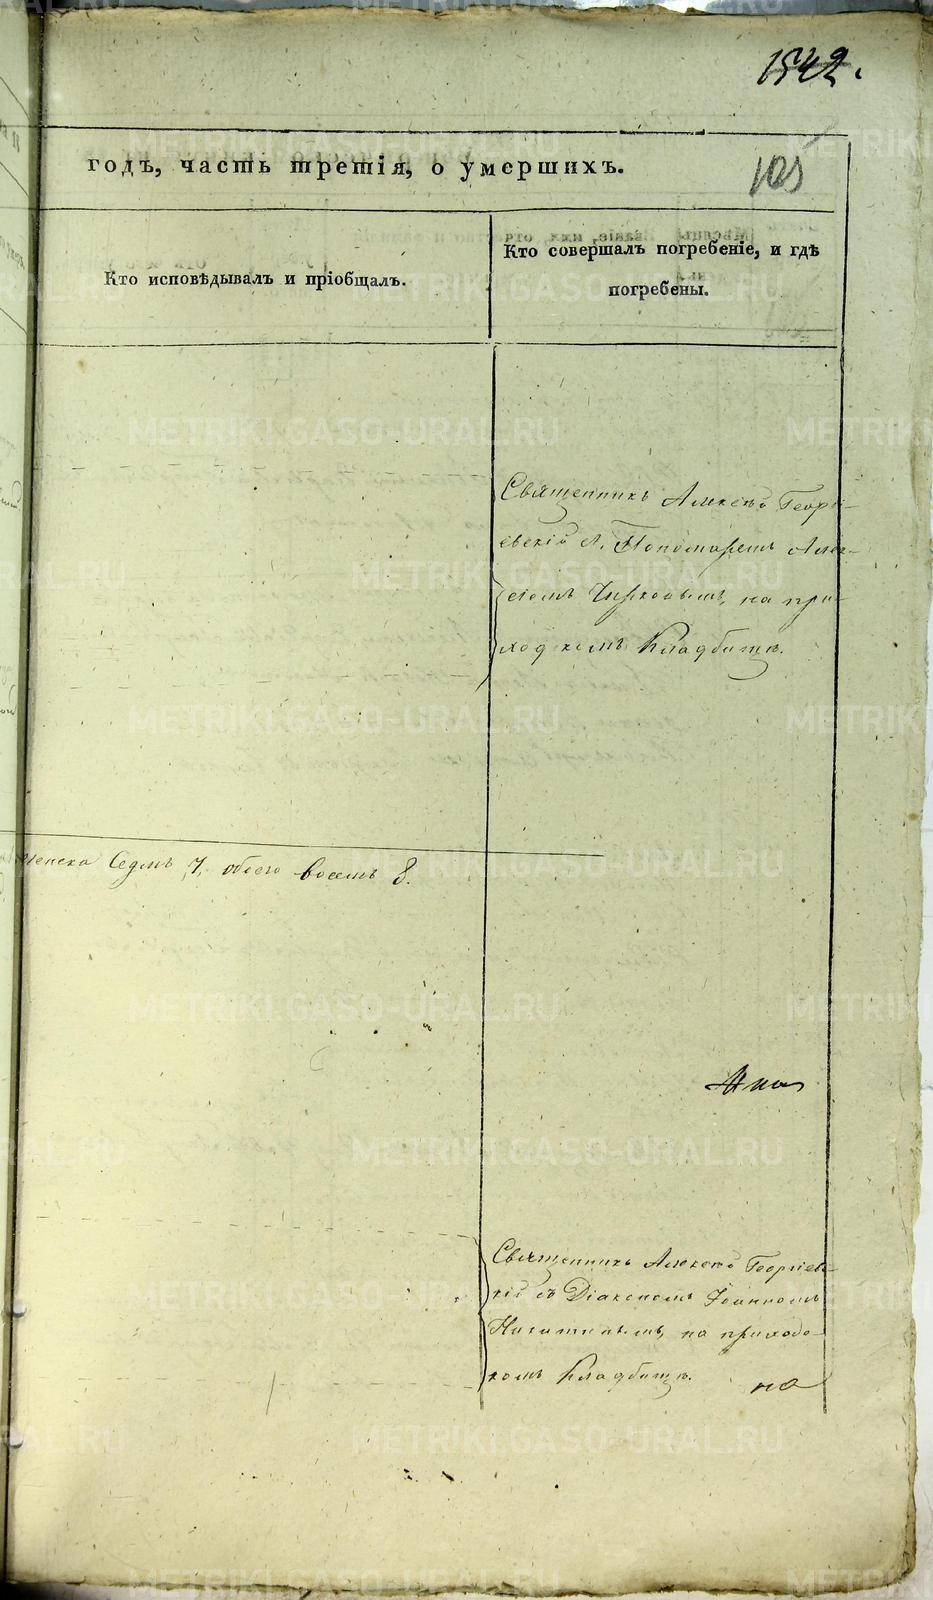 1542.
105
годъ, часть третія, о умершихъ.
Кто исповѣдывалъ и пріобщалъ.
Кто совершалъ погребеніе, и гдѣ
погребены.
Священникъ Алексѣй Георгі-
евскій с. Пономаремъ Алек-
сіемъ Чирковымъ, на при-
ходскомъ Кладбищѣ.
женска Седмь 7, обоего восемь 8.
Священникъ Алексѣй Георгіев-
кій съ Діакономъ Іоанномъ
Никитинымъ, на приход-
комъ Кладбищѣ.
METRIKI.GASO-URAL.RU